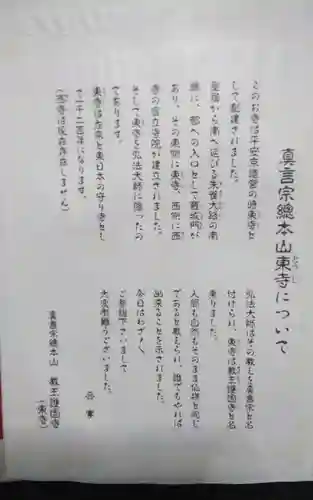 真言宗總本山東寺について
このお寺は平安京造営の時東寺と
して創建されました。
皇居から南へ延びる朱雀大路の南
端に、都への入口として羅城門が
あり、その東側に東寺、西側に西
寺の官立寺院が建立されました。
そして東寺を弘法大師に賜ったの
であります。
東寺は左京と東日本の守り寺とし
て千二百年になります。
(西寺は現在存在しません)
弘法大師はその教えを真言宗と名
付けられ、東寺は教王護国寺と名
乗りました。
人間も自然もそのまま仏様と同じ
であると教えられ、誰でもやれば
出来ることを示されました。
今日はわざ〱
ご参詣下さいまして
大変有難うございました。
合掌
真言宗總本山 教王護国寺
(東寺)